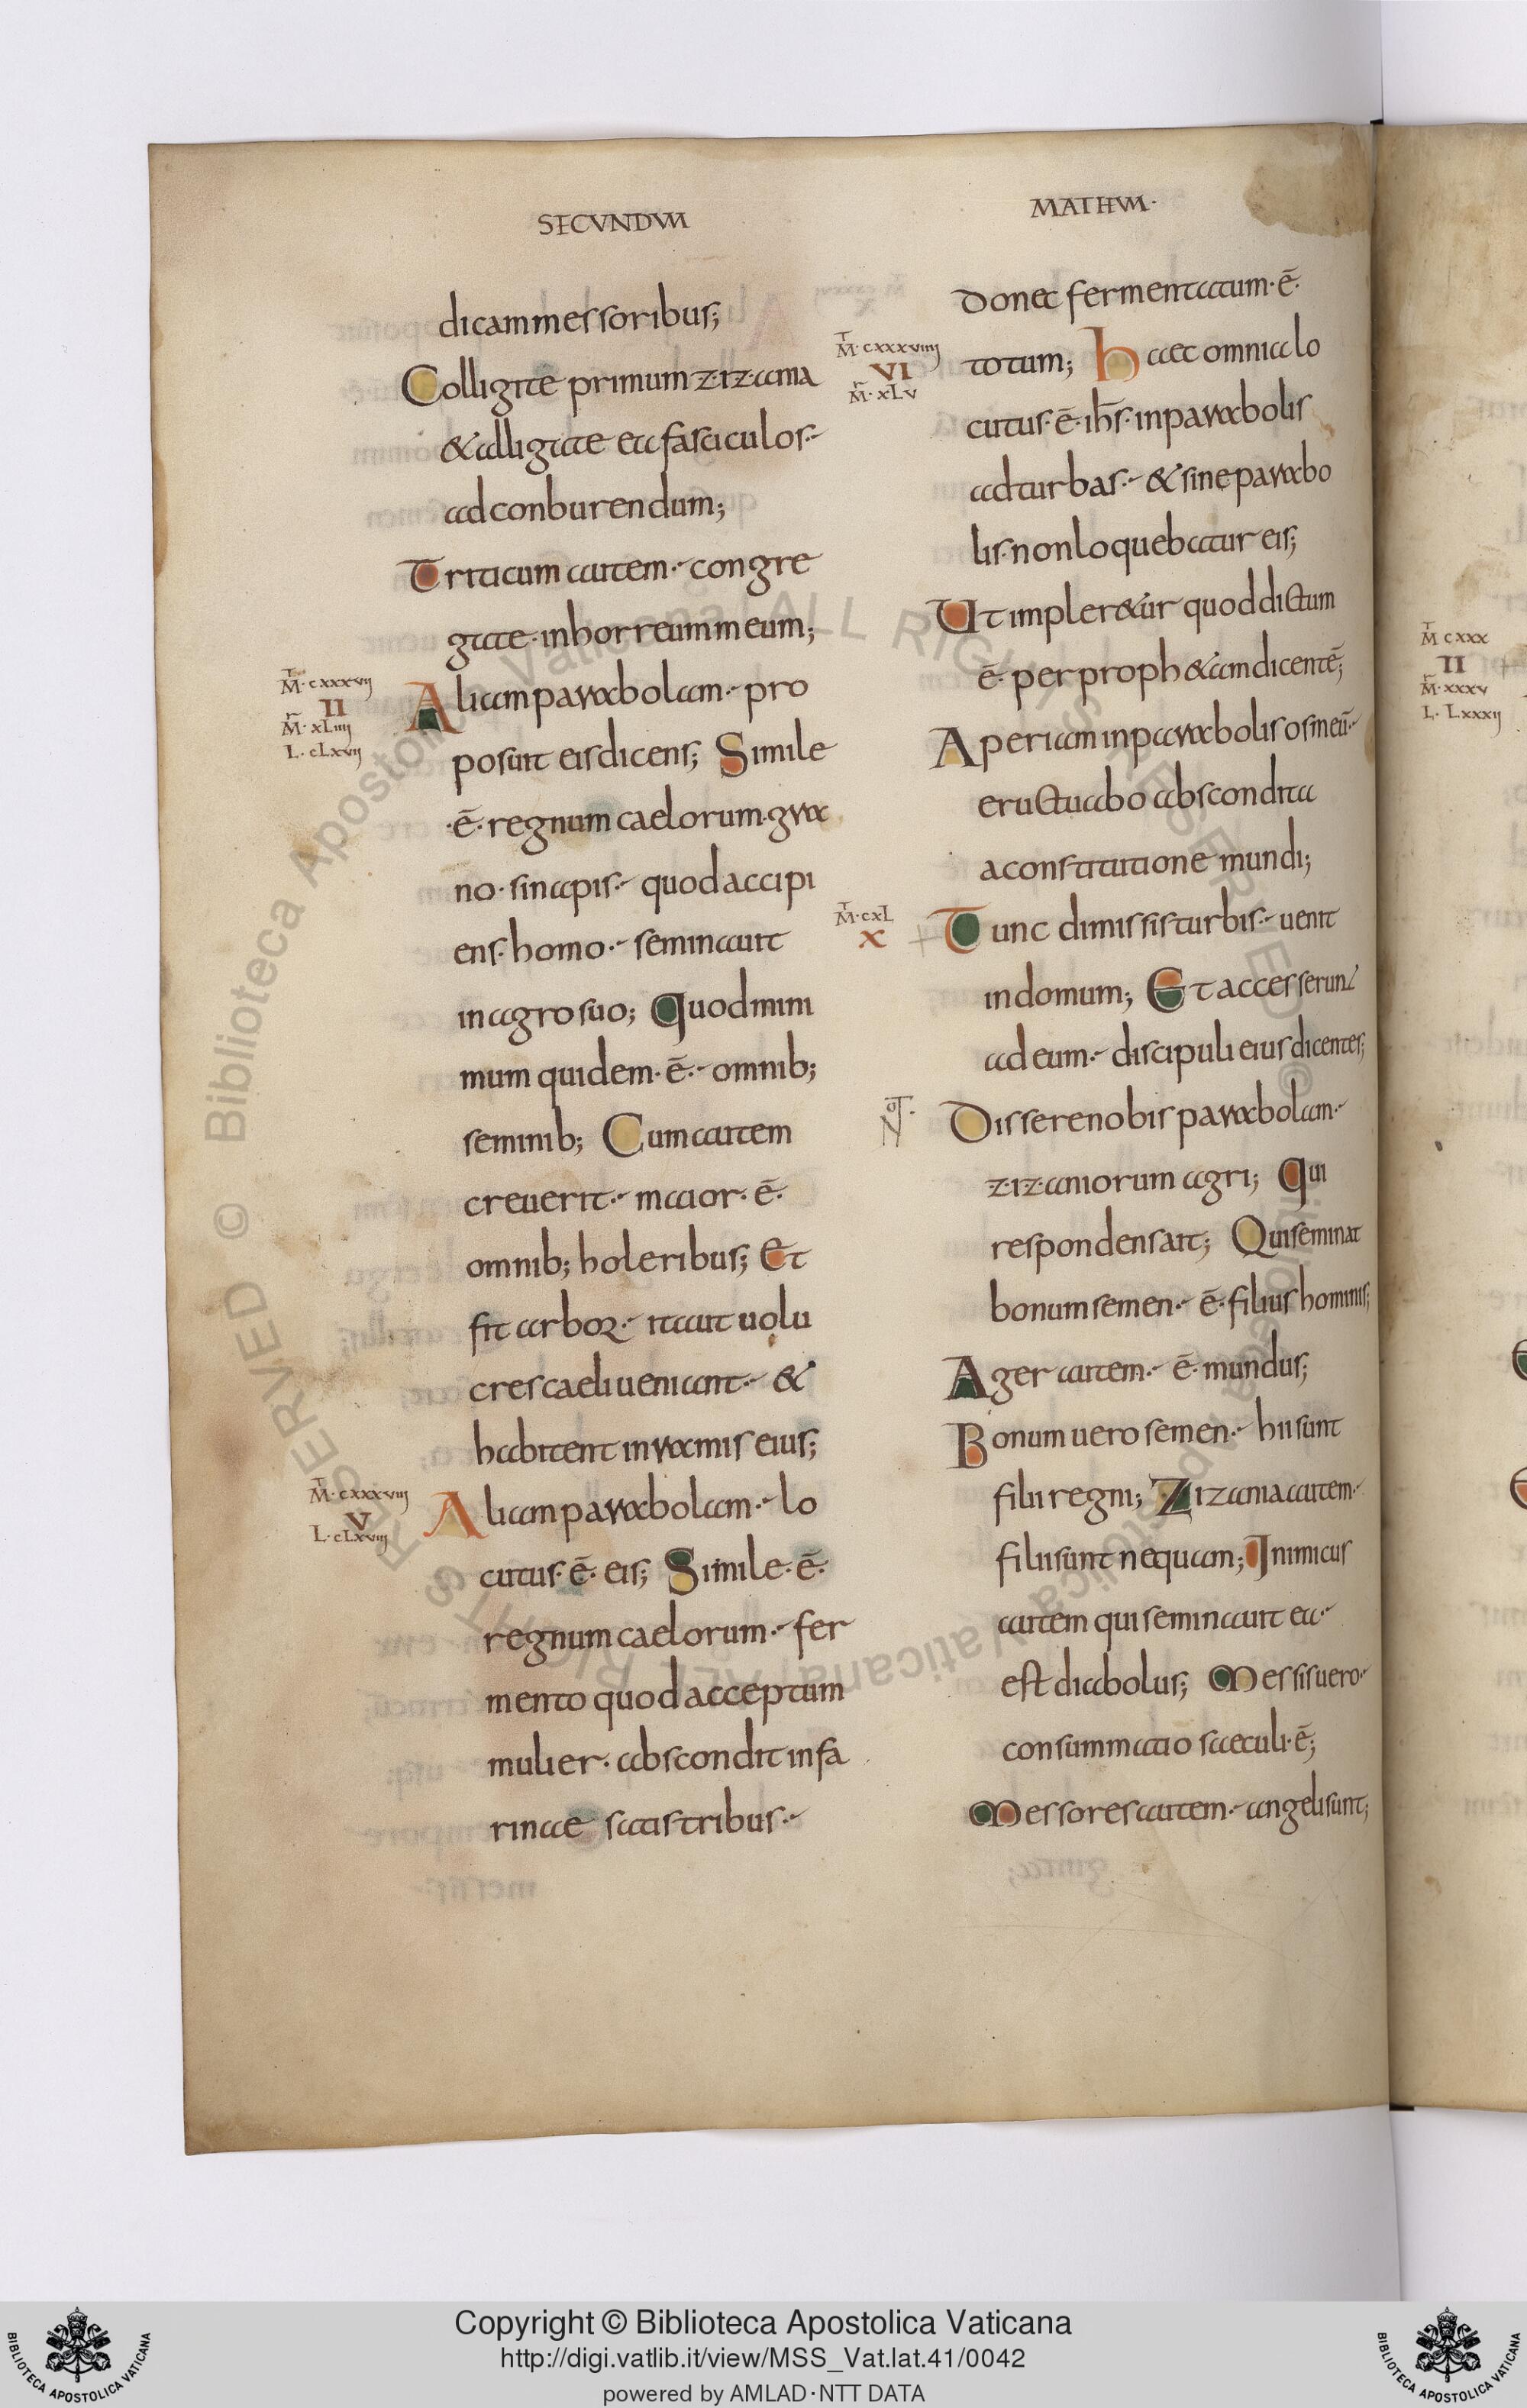 SECVNDVM
dicam messoribus;
Colligite primum zizania
& alligate ea fasciculos
ad conburendum;
Triticum autem congre
gate in horreum meum;
MT cxxxvii
II
Mr xliiii
L clxvii
Aliam parabolam pro
posuit eis dicens; Simile
ē regnum caelorum gra
no sinapis quod accipi
ens homo seminauit
in agro suo; Quod mini
mum quidem ē omnib;
seminib; Cum autem
creuerit maior ē
omnib; holeribus; Et
fit arbor ita ut uolu
cres caeli ueniant &
habitent in ramis eius;
MT cxxxviii
V
L clxviii
Aliam parabolam lo
cutus ē eis; Simile ē
regnum caelorum fer
mento quod acceptum
mulier abscondit in fa
rinae satis tribus
MATHVM
donec fermentatum ē
MT cxxxviiii
VI
Mr xlv
totum; haec omnia lo
cutus ē ihs in parabolis
ad turbas & sine parabo
lis non loquebatur eis;
Ut impler&ur quod dictum
ē per proph&am dicentē;
Aperiam in parabolis os meū
eructuabo abscondita
a constitutione mundi;
MT cxl
X
Tunc dimissis turbis uenit
in domum; Et accesserunt
ad eum discipuli eius dicentes;
Dissere nobis parabolam
zizaniorum agri; Qui
respondens ait; Qui seminat
bonum semen ē filius hominis;
Ager autem ē mundus;
Bonum uero semen hii sunt
filii regni; Zizania autem
filii sunt nequam; Inimicus
autem qui seminauit ea
est diabolus; Messis uero
consummatio saeculi ē;
Messores autem angeli sunt;
MT cxxx
II
Mr xxxv
L lxxxii
© Biblioteca Apostolica Vaticana / ALL RIGHTS RESERVED ©
Copyright © Biblioteca Apostolica Vaticana
http://digi.vatlib.it/view/MSS_Vat.lat.41/0042
powered by AMLAD·NTT DATA
BIBLIOTECA APOSTOLICA VATICANA
BIBLIOTECA APOSTOLICA VATICANA